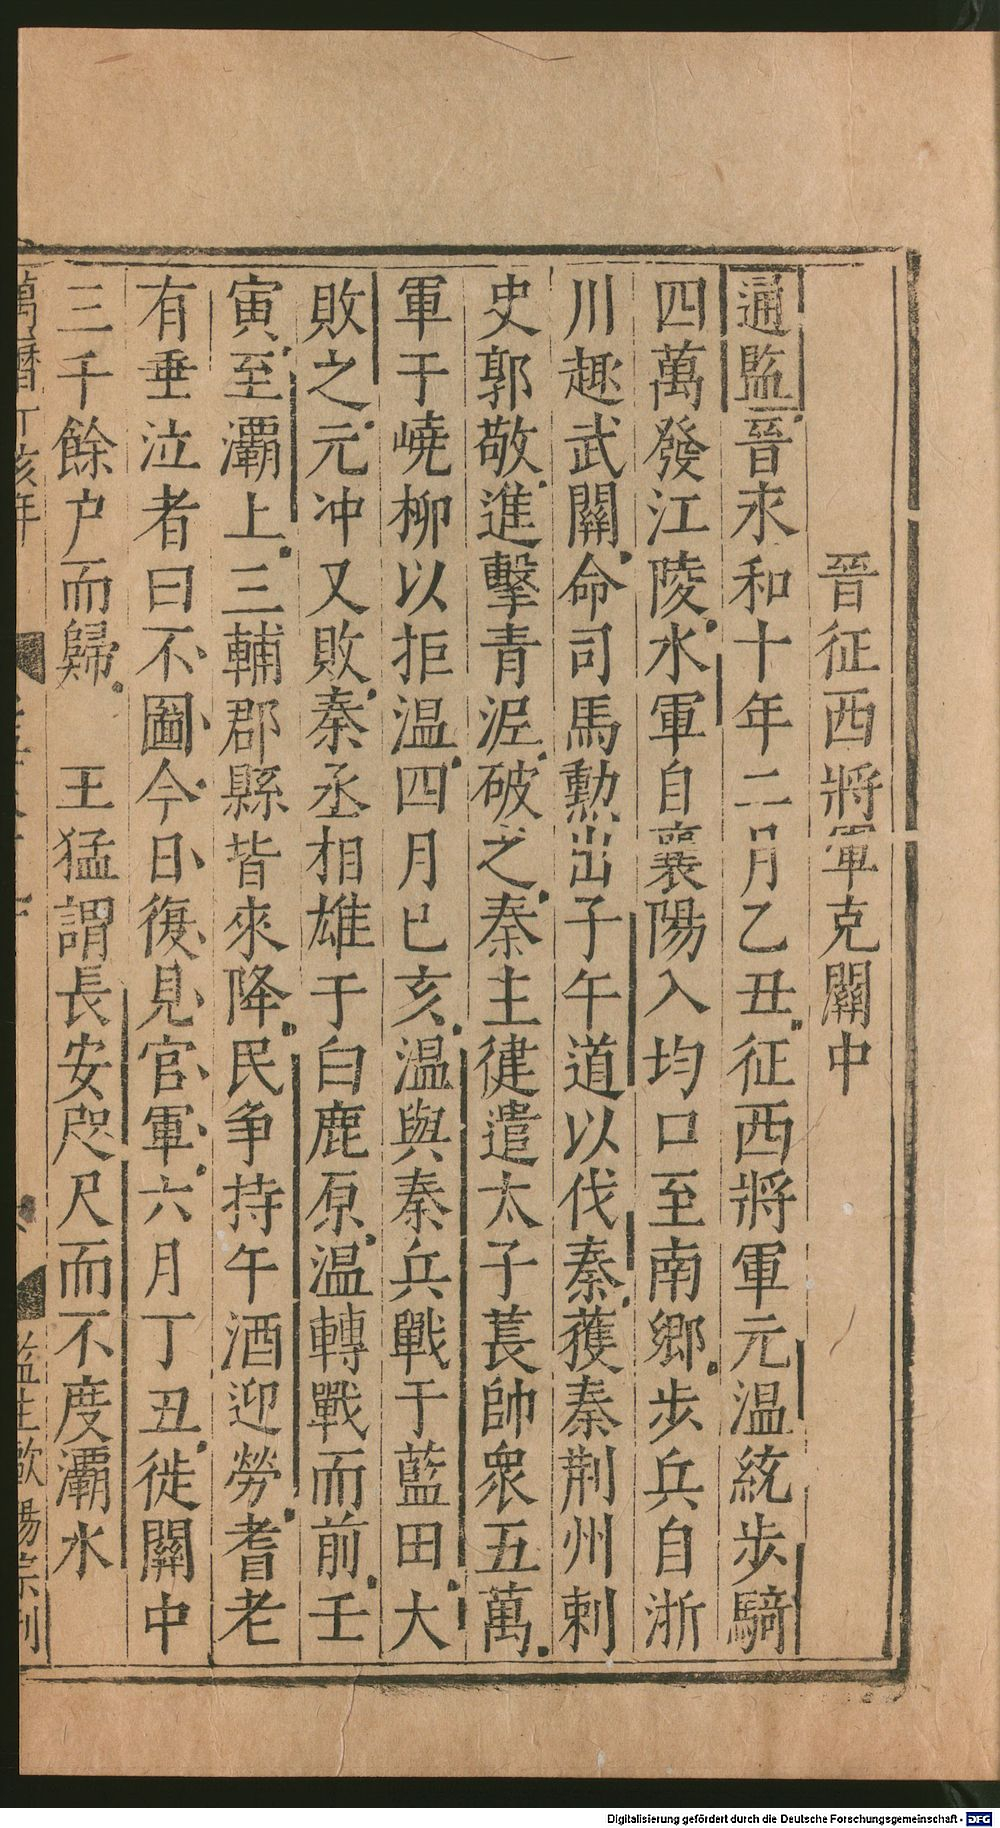 晉征西將軍克關中
通監晉永和十年二月乙丑征西將軍元温統步騎
四萬發江陵水軍自襄陽入均口至南鄉步兵自浙
川趣武關命司馬勳出子午道以伐秦獲秦荆州刺
史郭敬進擊青泥破之秦主徤遣太子萇帥衆五萬
軍于嶢柳以拒温四月巳亥温與秦兵戰于藍田大
敗之元冲又敗秦丞相雄于白鹿原温轉戰而前壬
寅至灞上三輔郡縣皆來降民争持午酒迎勞耆老
有垂泣者曰不圖今日復見官軍六月丁丑徙關中
三千餘户而歸 王猛謂長安咫尺而不度灞水
萬曆丁亥年
監生歐陽宗刊
Digitalisierung gefördert durch die Deutsche Forschungsgemeinschaft - DFG